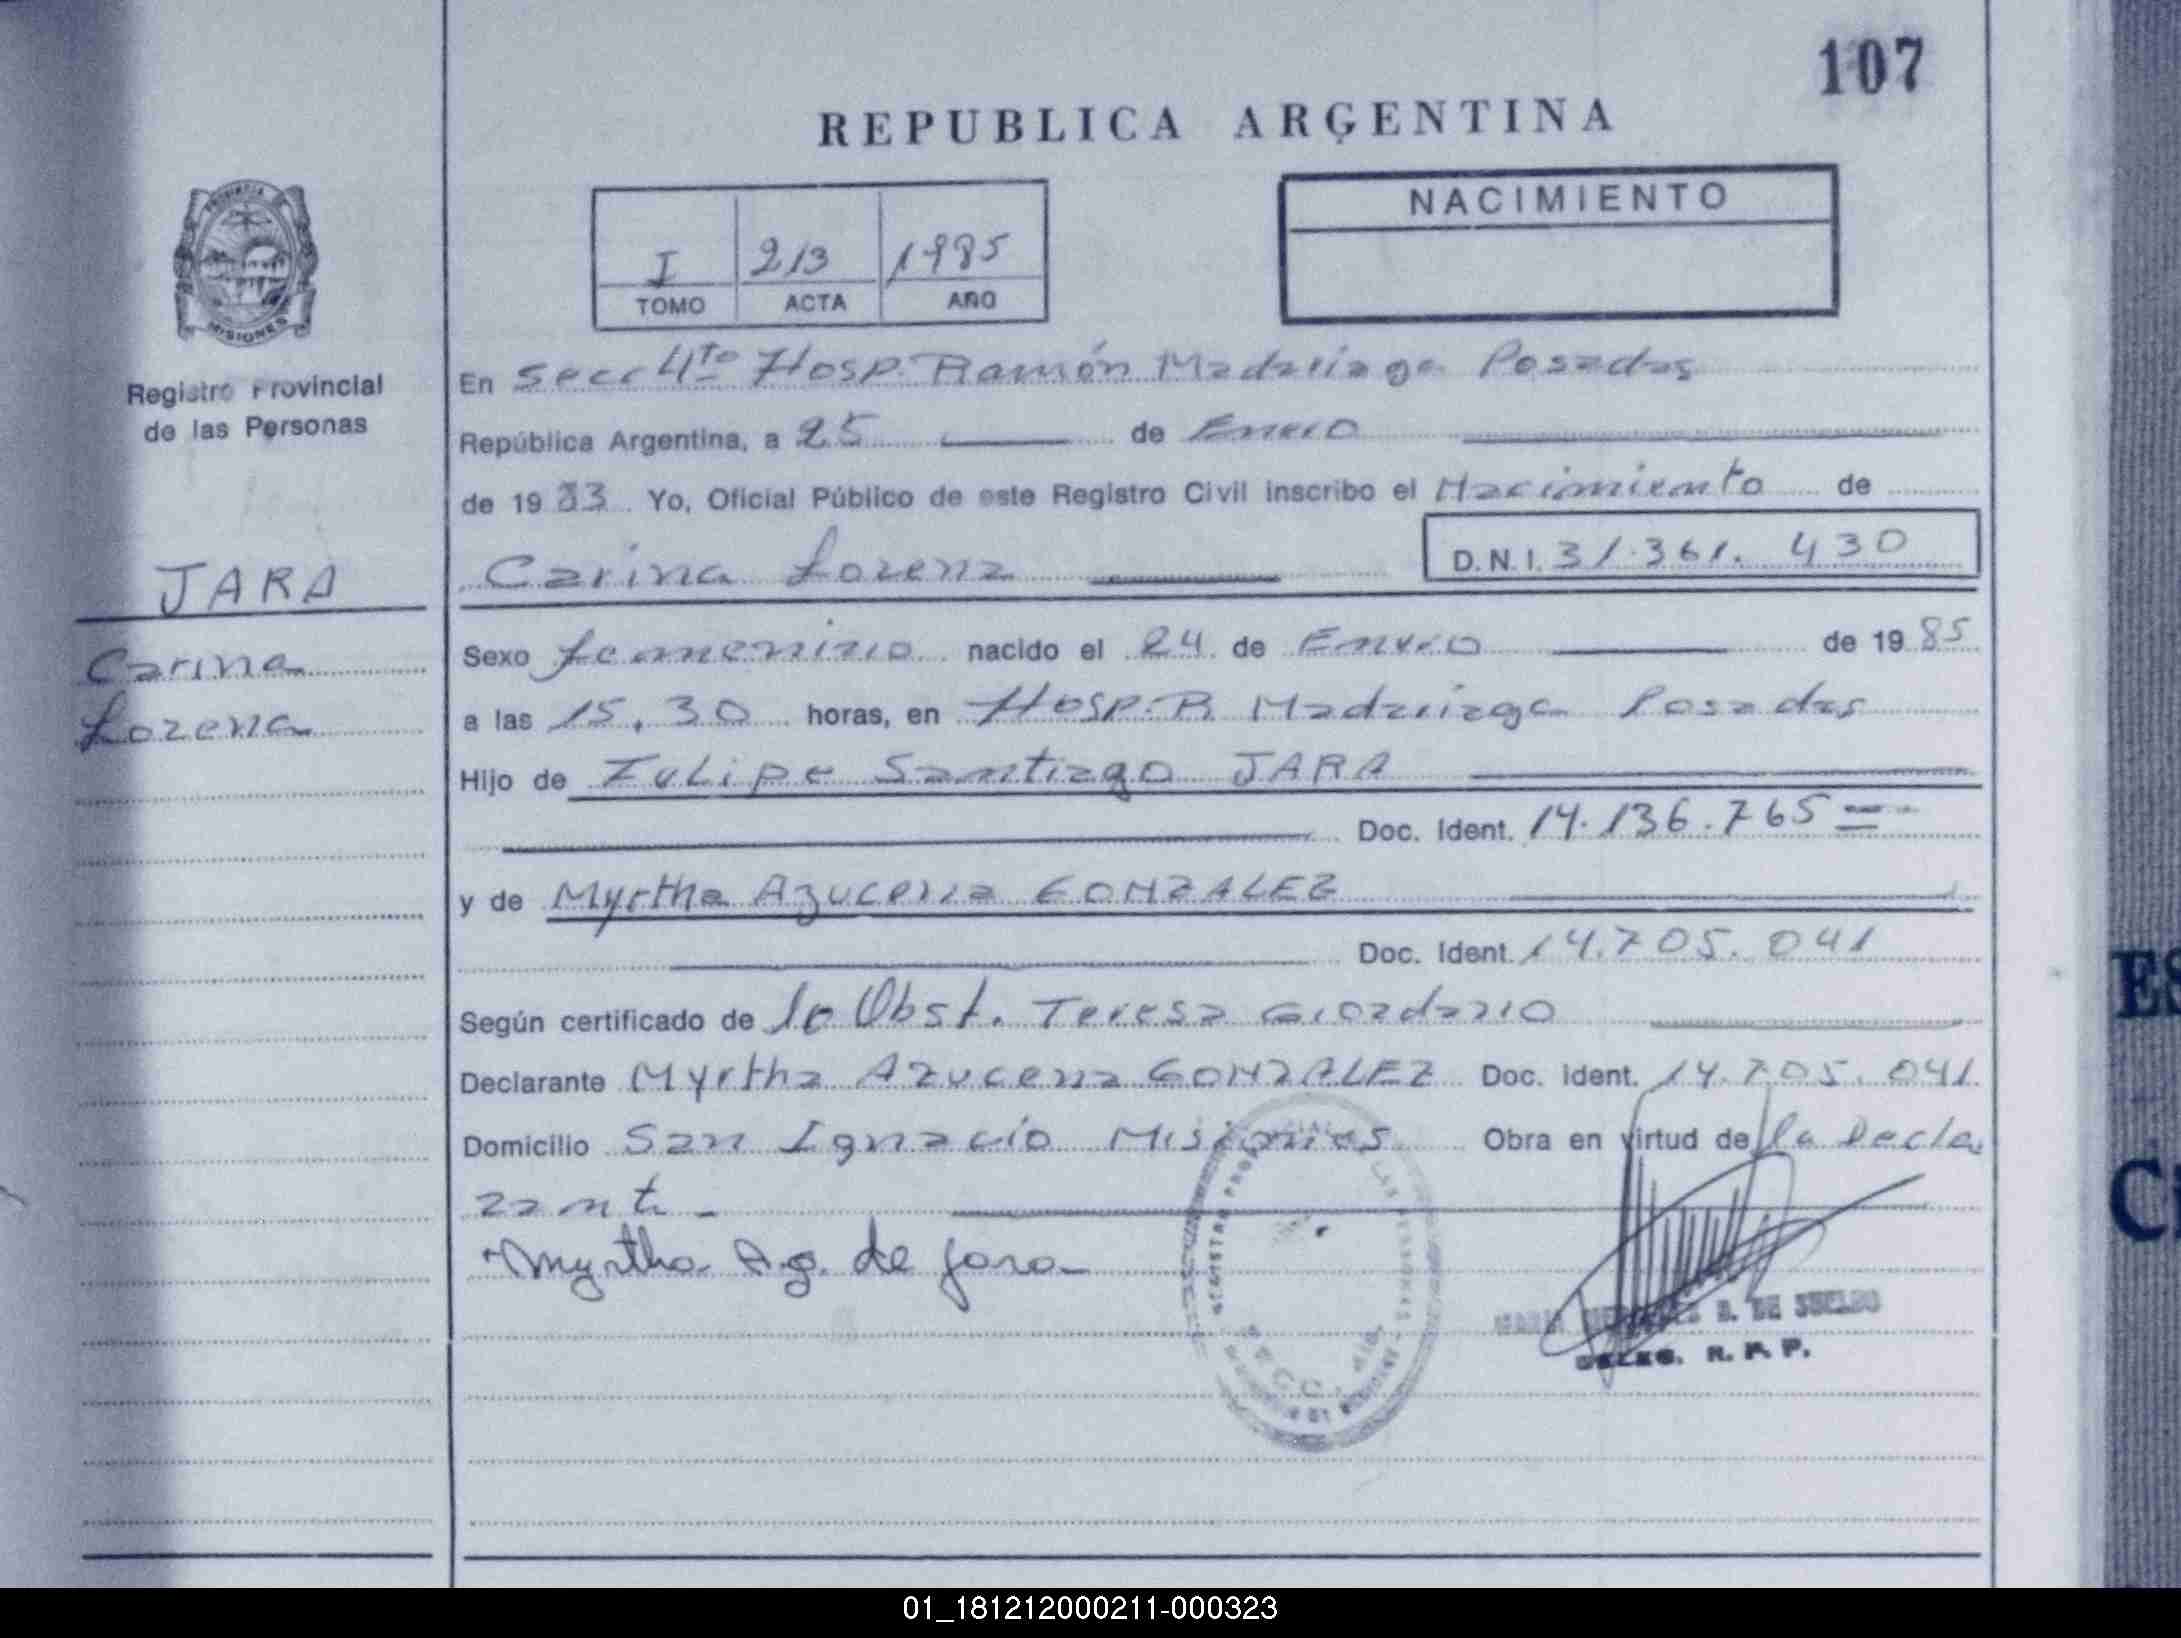 107
REPUBLICA ARGENTINA
PROVINCIA
MISIONES
Registro Provincial
de las Personas
I 213 1985
TOMO ACTA AÑO
NACIMIENTO
En Secc 4to Hosp. Ramón Madariaga Posadas
República Argentina, a 25 de Enero
de 19 Yo, Oficial Público de este Registro Civil inscribo el Nacimiento de
Carina Lorena D.N.I. 31.361.430
JARA
Carina
Lorena
Sexo femenino nacido el 24 de Enero de 1985
a las 15.30 horas, en Hosp. R. Madariaga Posadas
Hijo de Santiago JARA
Doc. Ident. 14.136.765
y de Myrtha Azucena GONZALEZ
Doc. Ident. 14.705.041
Según certificado de la Obst. Teresa Giordano
Declarante Myrtha Azucena GONZALEZ Doc. Ident. 14.705.041
Domicilio San Ignacio Misiones Obra en virtud de la Decla
rante
Myrtha A.g. de Jara
B. DE SUELDO
DELEG. R. P. P.
ES
01_181212000211-000323